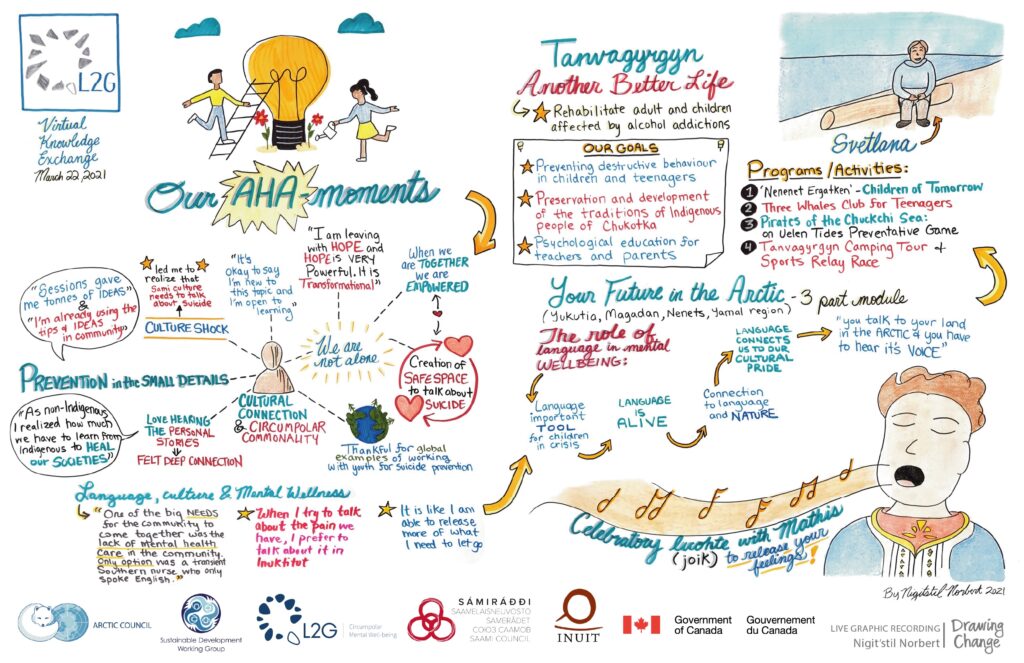 L2G
Virtual
Knowledge
Exchange
March 22, 2021
Our AHA-moments
"Sessions gave
me tonnes of IDEAS"
&
"I'm already using the
tips & IDEAS
in community"
led me to
realize that
Sami culture
needs to talk
about suicide
CULTURE SHOCK
"It's
okay to say
I'm new to
this topic and
I'm open to
learning"
"I am leaving
with HOPE and
HOPE is VERY
Powerful. It is
Transformational"
When we
are TOGETHER
we are
EMPOWERED
We are
not alone
Creation of
SAFE SPACE
to talk about
SUICIDE
PREVENTION in the SMALL DETAILS
"As non-Indigenous
I realized how much
we have to learn from
Indigenous to HEAL
our SOCIETIES"
LOVE HEARING
THE PERSONAL
STORIES
FELT DEEP CONNECTION
CULTURAL
CONNECTION
& CIRCUMPOLAR
COMMONALITY
Thankful for global
examples of working
with youth for Suicide prevention
Language, culture & Mental Wellness
"One of the big NEEDS
for the community to
come together was the
lack of mental health
care in the community.
Only option was a transient
Southern nurse who only
spoke English."
When I try to talk
about the pain we
have, I prefer to
talk about it in
Inuktitut
It is like I am
able to release
more of what
I need to let go
Tanvagyrgyn
Another Better Life
Rehabilitate adult and children
affected by alcohol addictions
OUR GOALS
Preventing destructive behaviour
in children and teenagers
Preservation and development
of the traditions of Indigenous
people of Chukotka
Psychological education for
teachers and parents
Svetlana
Programs/Activities:
1 'Nenenet Ergatken' - Children of Tomorrow
2 Three Whales Club for Teenagers
3 Pirates of the Chuckchi Sea:
on Uelen Tides Preventative Game
4 Tanvagyrgyn Camping Tour +
Sports Relay Race
Your Future in the Arctic - 3 part module
(Yukutia, Magadan, Nenets, Yamal region)
The role of
language in mental
WELLBEING:
Language
important
TOOL
for children
in crisis
LANGUAGE
IS
ALIVE
Connection
to language
and NATURE
LANGUAGE
CONNECTS
US TO OUR
CULTURAL
PRIDE
"you talk to your land
in the ARCTIC & you have
to hear it's VOICE"
Celebratory luohte with Mathis
(joik) to release your
feelings!
By, Nigit'stil Norbert 2021
ARCTIC COUNCIL
Sustainable Development
Working Group
L2G
Circumpolar
Mental Well-being
SÁMIRÁĐĐI
SAAMELAISNEUVOSTO
SAMERÅDET
СОЮЗ СААМОВ
SAAMI COUNCIL
INUIT
Government
of Canada
Gouvernement
du Canada
LIVE GRAPHIC RECORDING
Nigit'stil Norbert
Drawing
Change